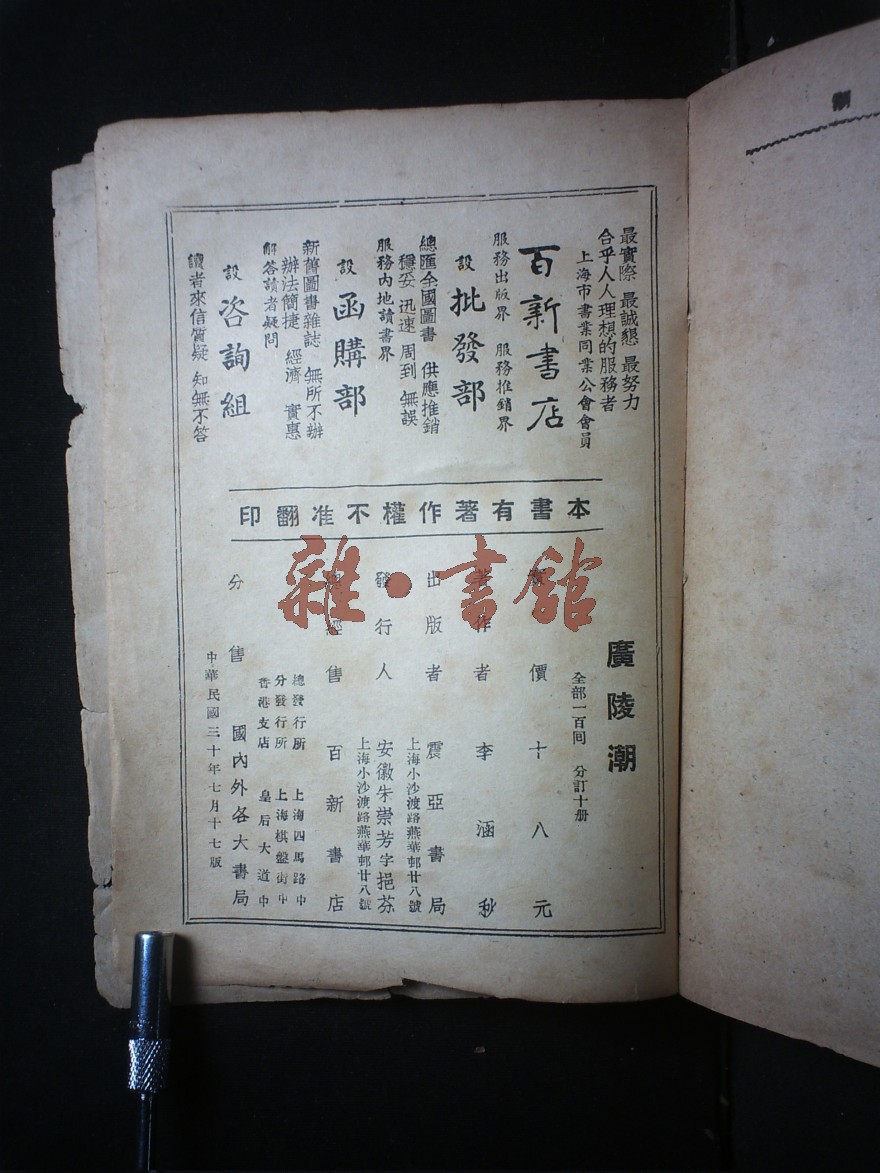 最實際 最誠懇 最努力
合乎人人理想的服務者
上海市書業同業公會會員
百新書店
服務出版界 服務推銷界
設批發部
總匯全國圖書 供應推銷
穩妥 迅速 周到 無誤
服務內地讀書界
設函購部
新舊圖書雜誌 無所不辦
辦法簡捷 經濟 實惠
解答讀者疑問
設咨詢組
讀者來信質疑 知無不答
本書有著作權不准翻印
廣陵潮
全部一百囘 分訂十册
實價十八元
著作者 李涵秋
出版者 震亞書局
上海小沙渡路燕華邨廿八號
發行人 安徽朱崇芳字挹芬
上海小沙渡路燕華邨廿八號
經售 百新書店
總發行所 上海四馬路中
分發行所 上海棋盤街中
香港支店 皇后大道中
分售 國內外各大書局
中華民國三十年七月十七版
雜·書館
潮